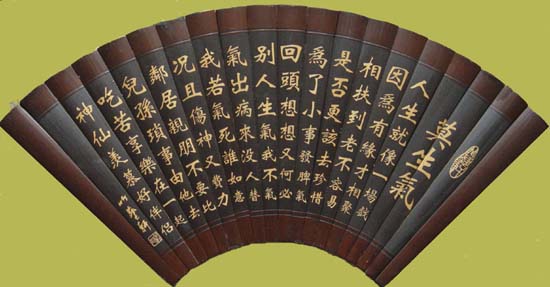 莫生氣
人生就像一場戲
因爲有緣才相聚
相扶到老不容易
是否更該去珍惜
爲了小事發脾氣
回頭想想又何必
別人生氣我不氣
氣出病來没人替
我若氣死誰如意
况且傷神又費力
鄰居親朋不要比
兒孫瑣事由他去
吃苦享樂在一起
神仙羡慕好伴侶